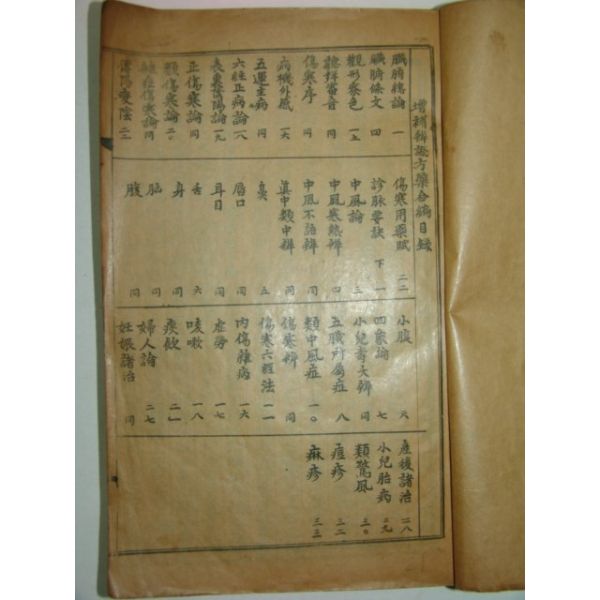 增補辨證方藥合編目錄
臟腑總論 一
臟腑條文 四
觀形察色 一五
聽聲審音 同
傷寒序 同
病機外感 一六
五運主病 同
六經正病論 一八
表裏陰陽論 一九
正傷寒論 同
類傷寒論 二〇
雜症傷寒論 同
傳陽變陰 二二
傷寒用藥賦 二二
診脉要訣 下 一
中風論 三
中風寒熱辨 四
中風不語辨 同
眞中類中辨 同
鼻 五
唇口 同
耳目 同
舌 六
身 同
胸 同
腹 同
小腹 六
四象論 七
小兒壽夭辨 同
五臟所屬症 八
類中風症 一〇
傷寒辨 同
傷寒六經法 一一
內傷雜病 一六
虛勞 一七
咳嗽 一八
痰飮 二一
婦人論 二七
妊娠諸治 同
產後諸治 二八
小兒胎病 二九
類驚風 三〇
痘疹 三二
麻疹 三三